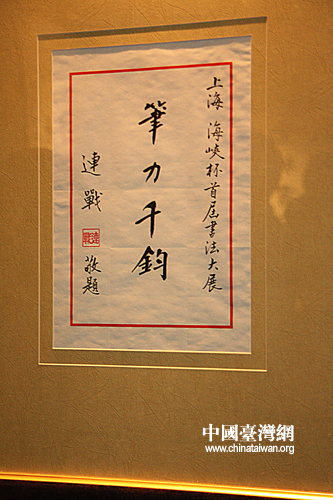 上海 海峽杯首屆書法大展
筆力千鈞
連戰 敬題
中國臺灣網
www.chinataiwan.org